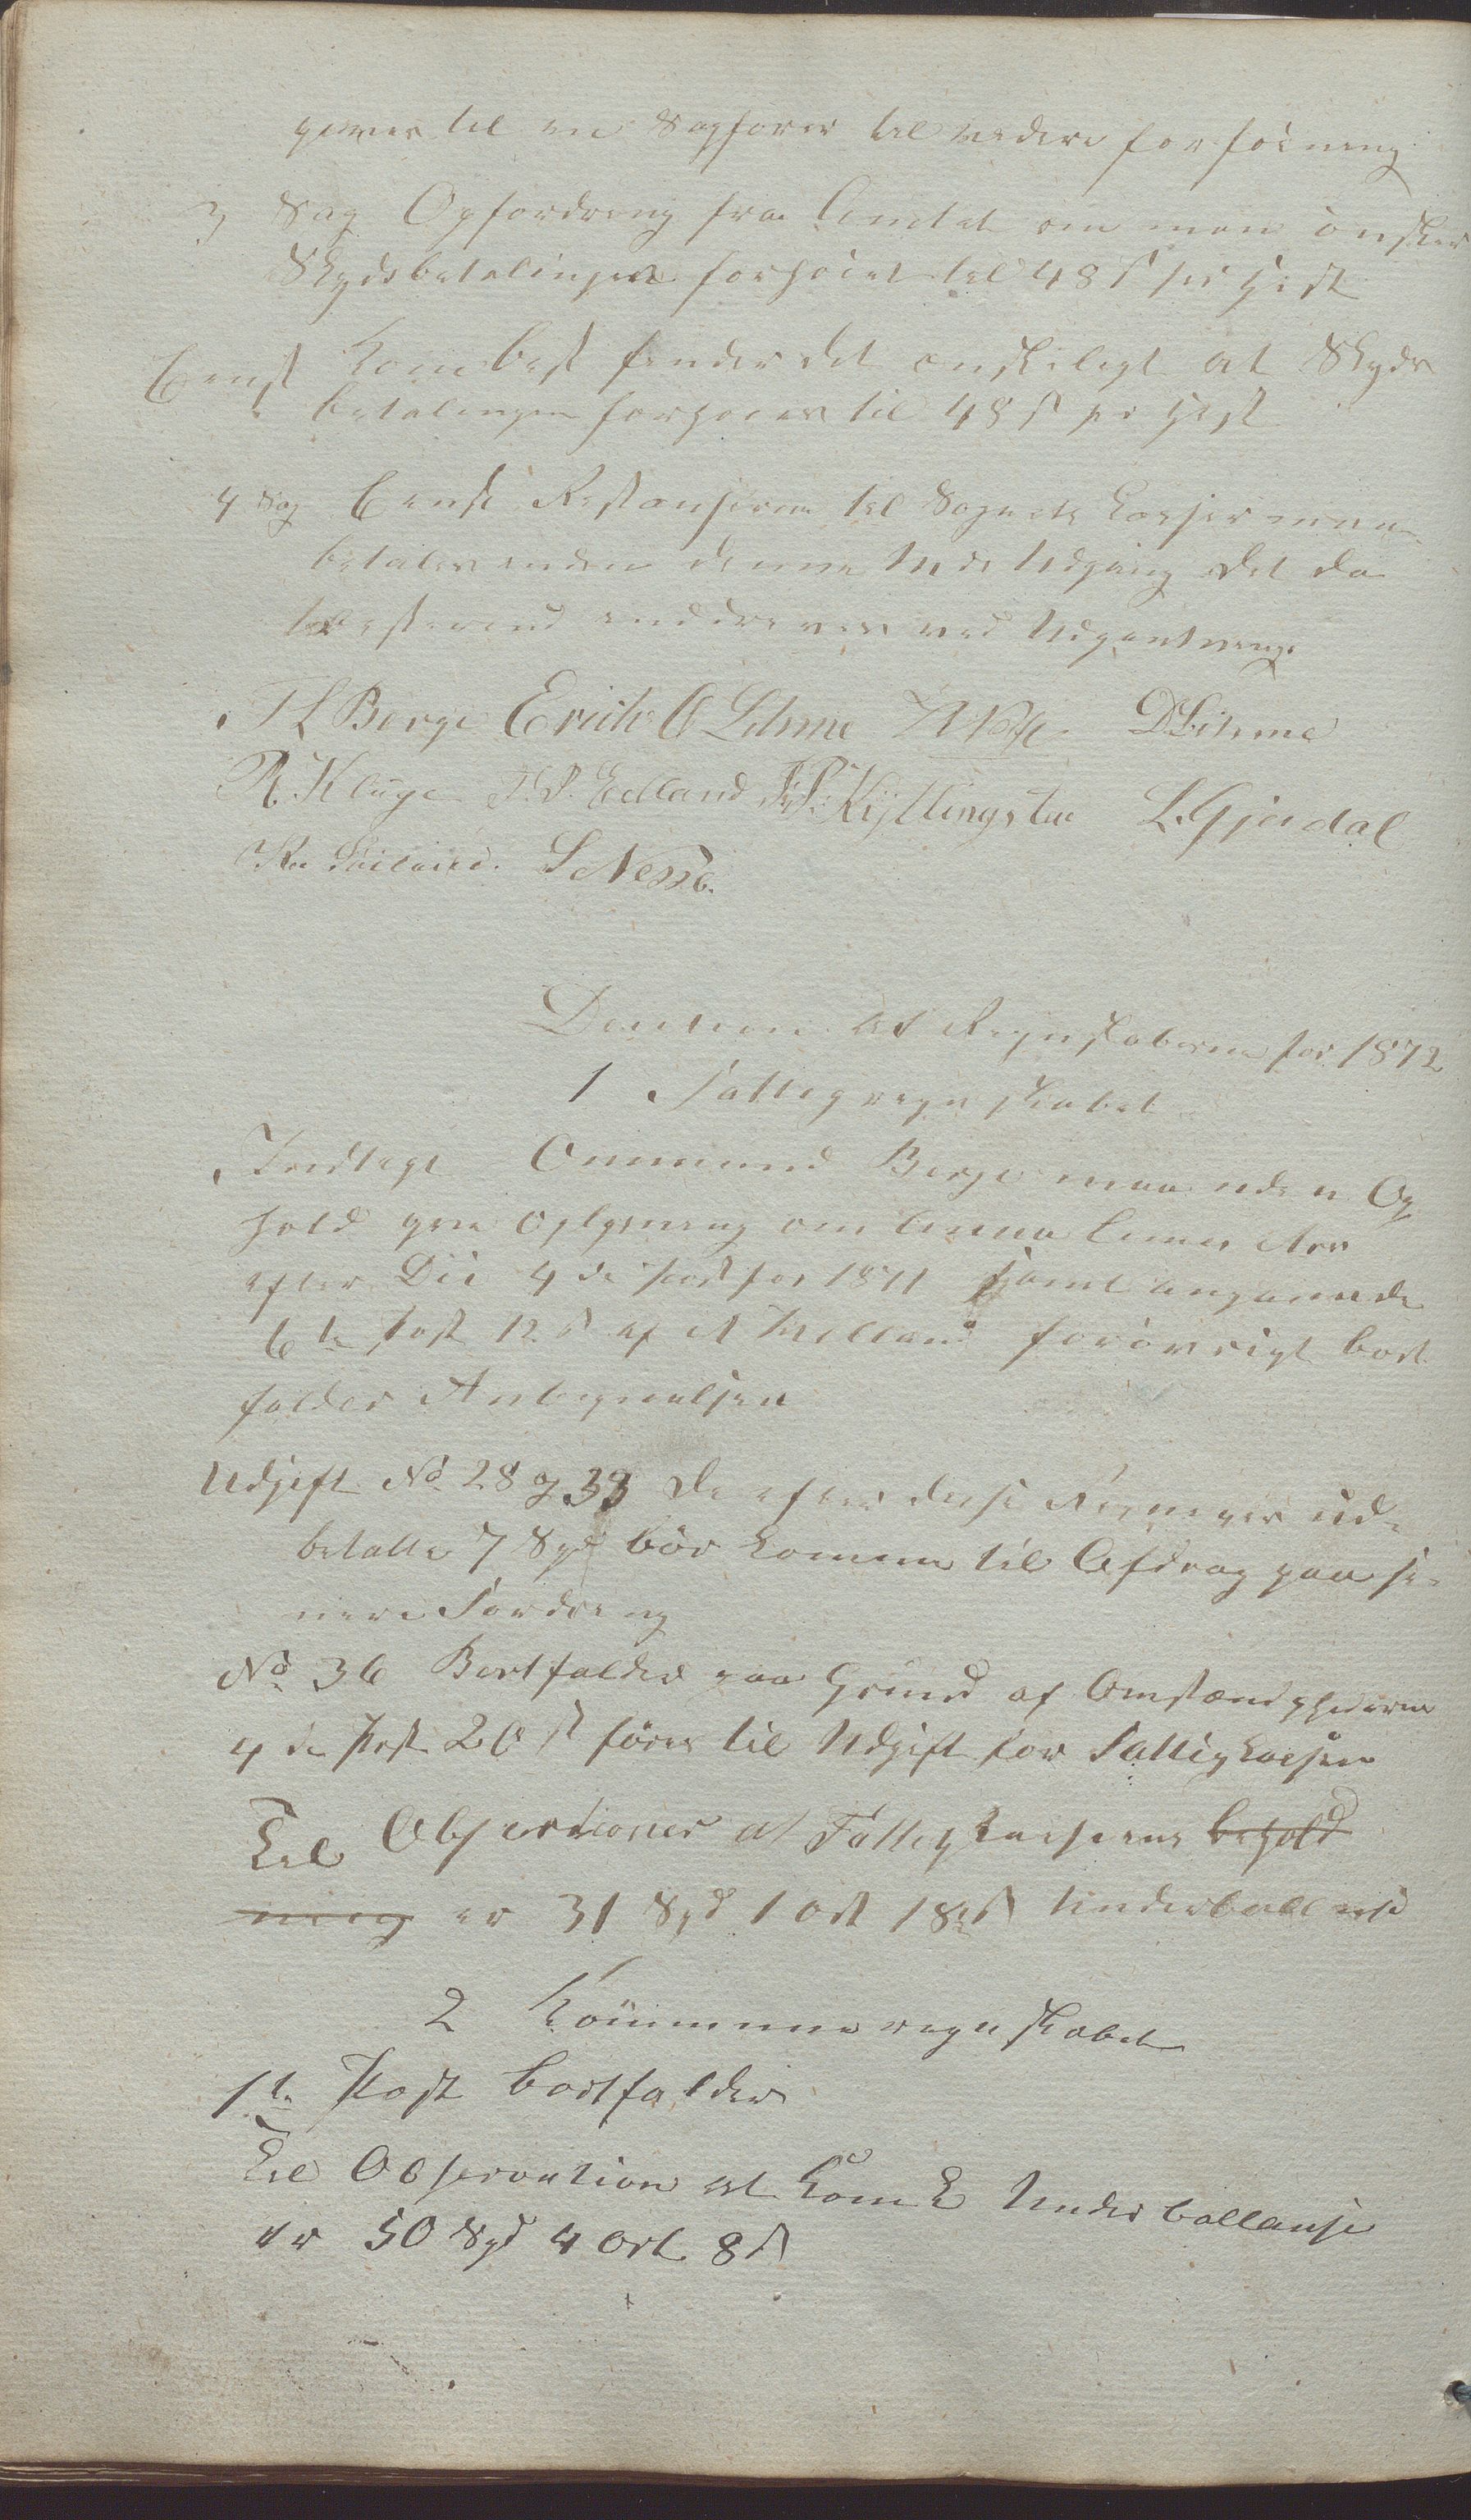 gives til en Sagfører til videre forføining
3 Sag Opfordring fra Amtet om man ønsker
Skydsbetalingen forhøiet til 48 s pr Hest
Besl Kombest finder det ønskeligt at Skyds
betalingen forhøies til 48 s pr Hest
4 Sag Besl Restanserne til Sognets Kasser maa
betales inden denne Mds Udgang det da
resterende inddrives ved Udpantning.
T L Berge Erich O Lihme D Lihme
R. Kluge T. P. Edland T. P. Kyllingstad L. Gjerdal
S Nesse.
Decision at Regnskaberne for 1872
1 Fattigregnskabet
Indtægt Ommund Berge maa uden Op
hold give Oplysning om
efter Dec 4 de post for 1871 samt angaaende
6te Post 12 s af forøvrigt bort
falder Antegnelsen
Udgift No 28 og 33 de efter disse Regninger ud-
betalte 7 Spd bør komme til Afdrag paa se-
nere Fordring
No 36 Bortfalder paa Grund af Omstændighederne
4 de Post 20 s føres til Udgift for Fattigkassen
Til Observationer at Fattigkassens behold
ning er 31 Spd 1 ort 18 s Underballanse
2 Kommuneregnskabet
1te Post bortfalder
Til Observation at Kom K Underballanse
er 50 Spd 4 Ort 8 s